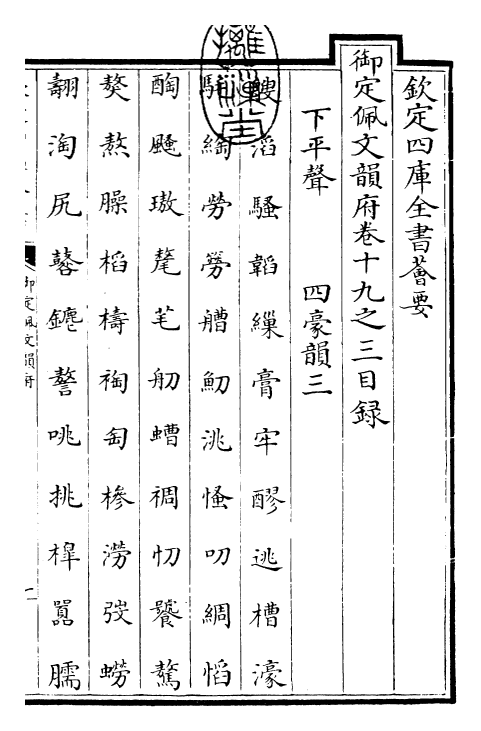 欽定四庫全書薈要
御定佩文韻府卷十九之三目録
下平聲 四豪韻三
滔 騷 韜 繅 膏 牢 醪 逃 槽 濠
綯 勞 艚 魛 洮 慅 叨 綢 慆
醄 璈 氂 芼 舠 螬 裯 忉 饕 驁
熬 臊 槄 檮 裪 匋 槮 澇 弢 蟧
翿 淘 尻 鼛 謷 咷 挑 槔 囂 臑
御定佩文韻府